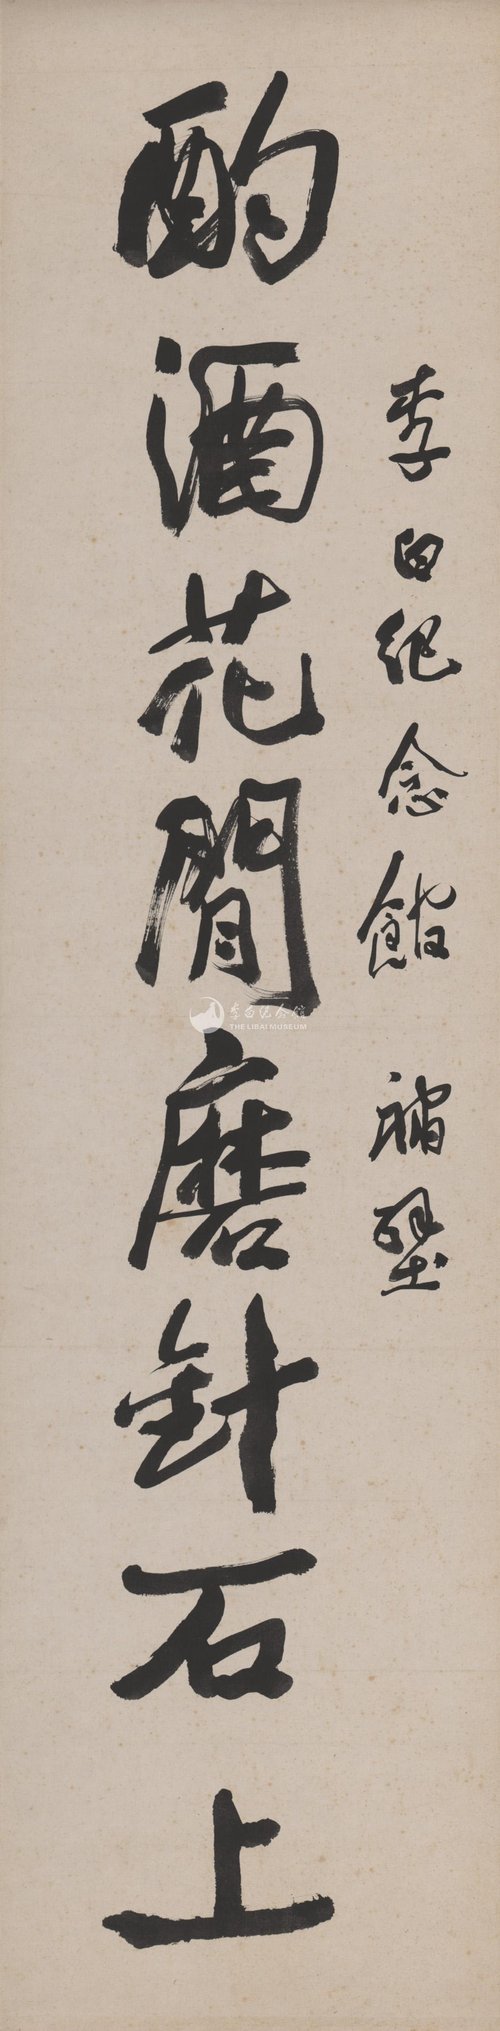 李白纪念馆 补壁
酌酒花間磨針石上
李白纪念馆
THE LIBAI MUSEUM